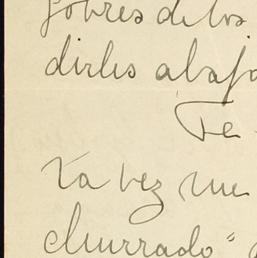 sobres de los
dirles abajo
Te
ta vez me
churrado"